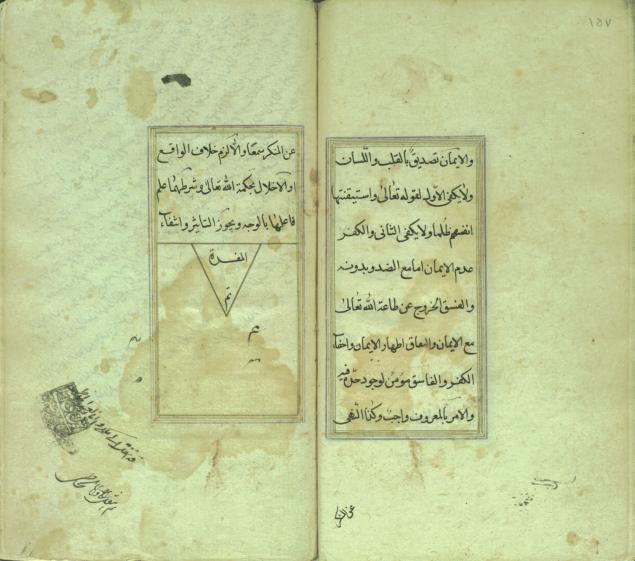 ١٥٧
والايمان تصديق بالقلب واللسان
ولا يكفى الاول لقوله تعالى واستيقنتها
انفسهم ظلما ولا يكفى الثانى والكفر
عدم الايمان اما مع الضد وبدونه
والفسق الخروج عن طاعة الله تعالى
مع الايمان والنفاق اظهار الايمان واخفاء
الكفر والفاسق مؤمن لوجود حده فيه
والامر بالمعروف واجب وكذا النهى
عن المنكر سمعا والا لزم خلاف الواقع
او الاخلال بحكمة الله تعالى وشرطهما علم
فاعلهما بالوجه وتجويز التاثير وانتفاء
المفسدة
تم